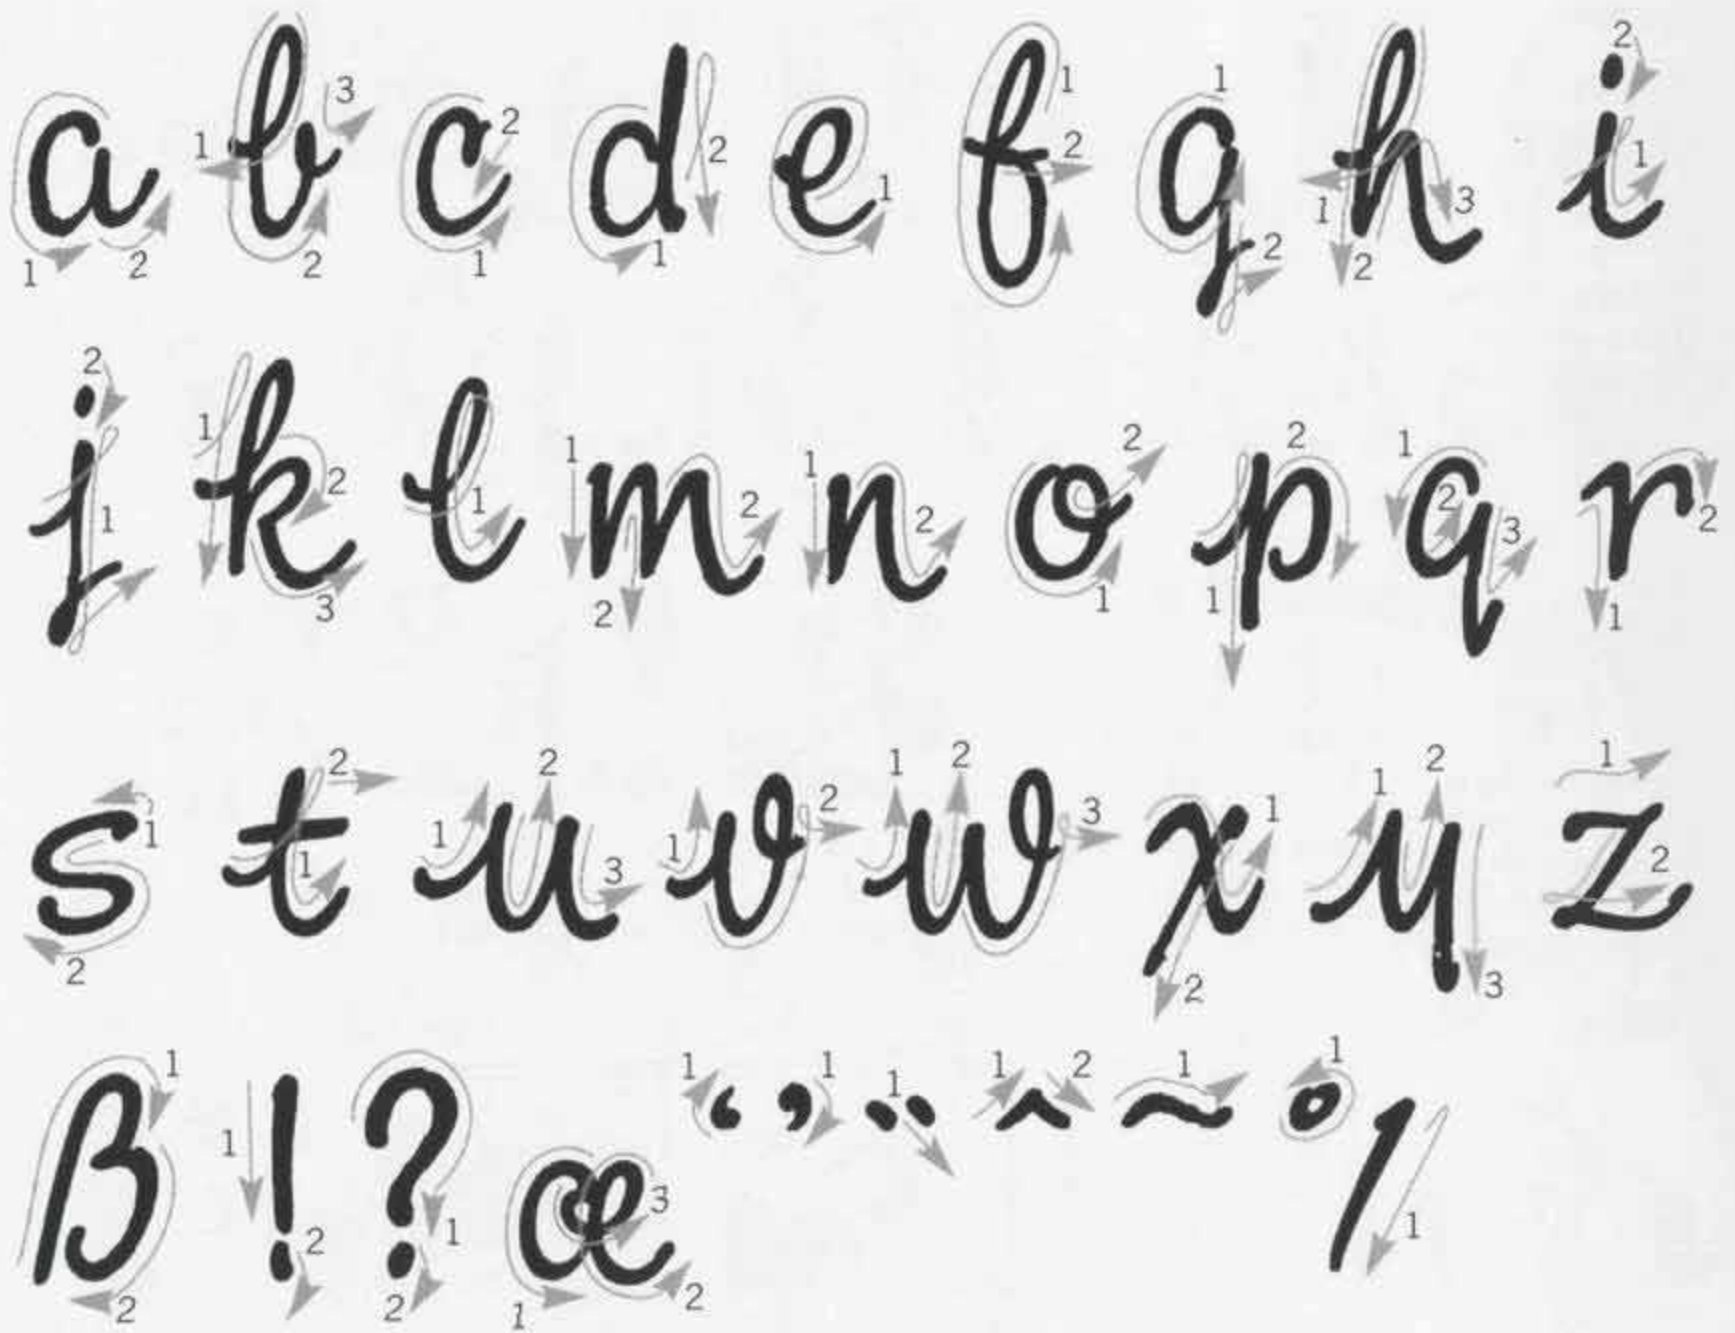 a b c d e f g h i
j k l m n o p q r
s t u v w x y z
ß ! ? æ ‘ ’ ¨ ^ ~ ° /